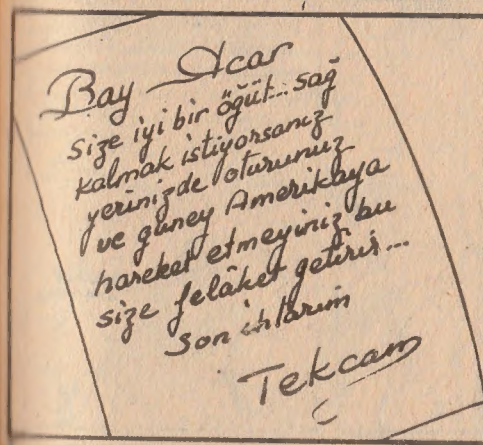 Bay Acar
size iyi bir öğüt... sağ
kalmak istiyorsanız
yerinizde oturunuz
ve güney Amerikaya
hareket etmeyiniz bu
size felâket getirir...
Son ihtarım
Tekcam